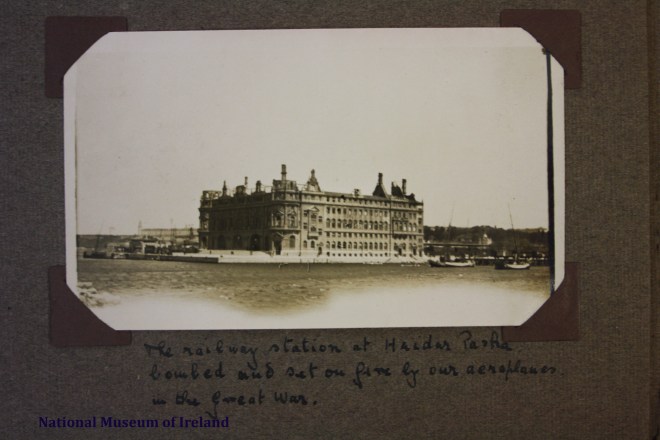 The railway station at Haidar Pasha.
bombed and set on fire by our aeroplanes
in the Great War.
National Museum of Ireland